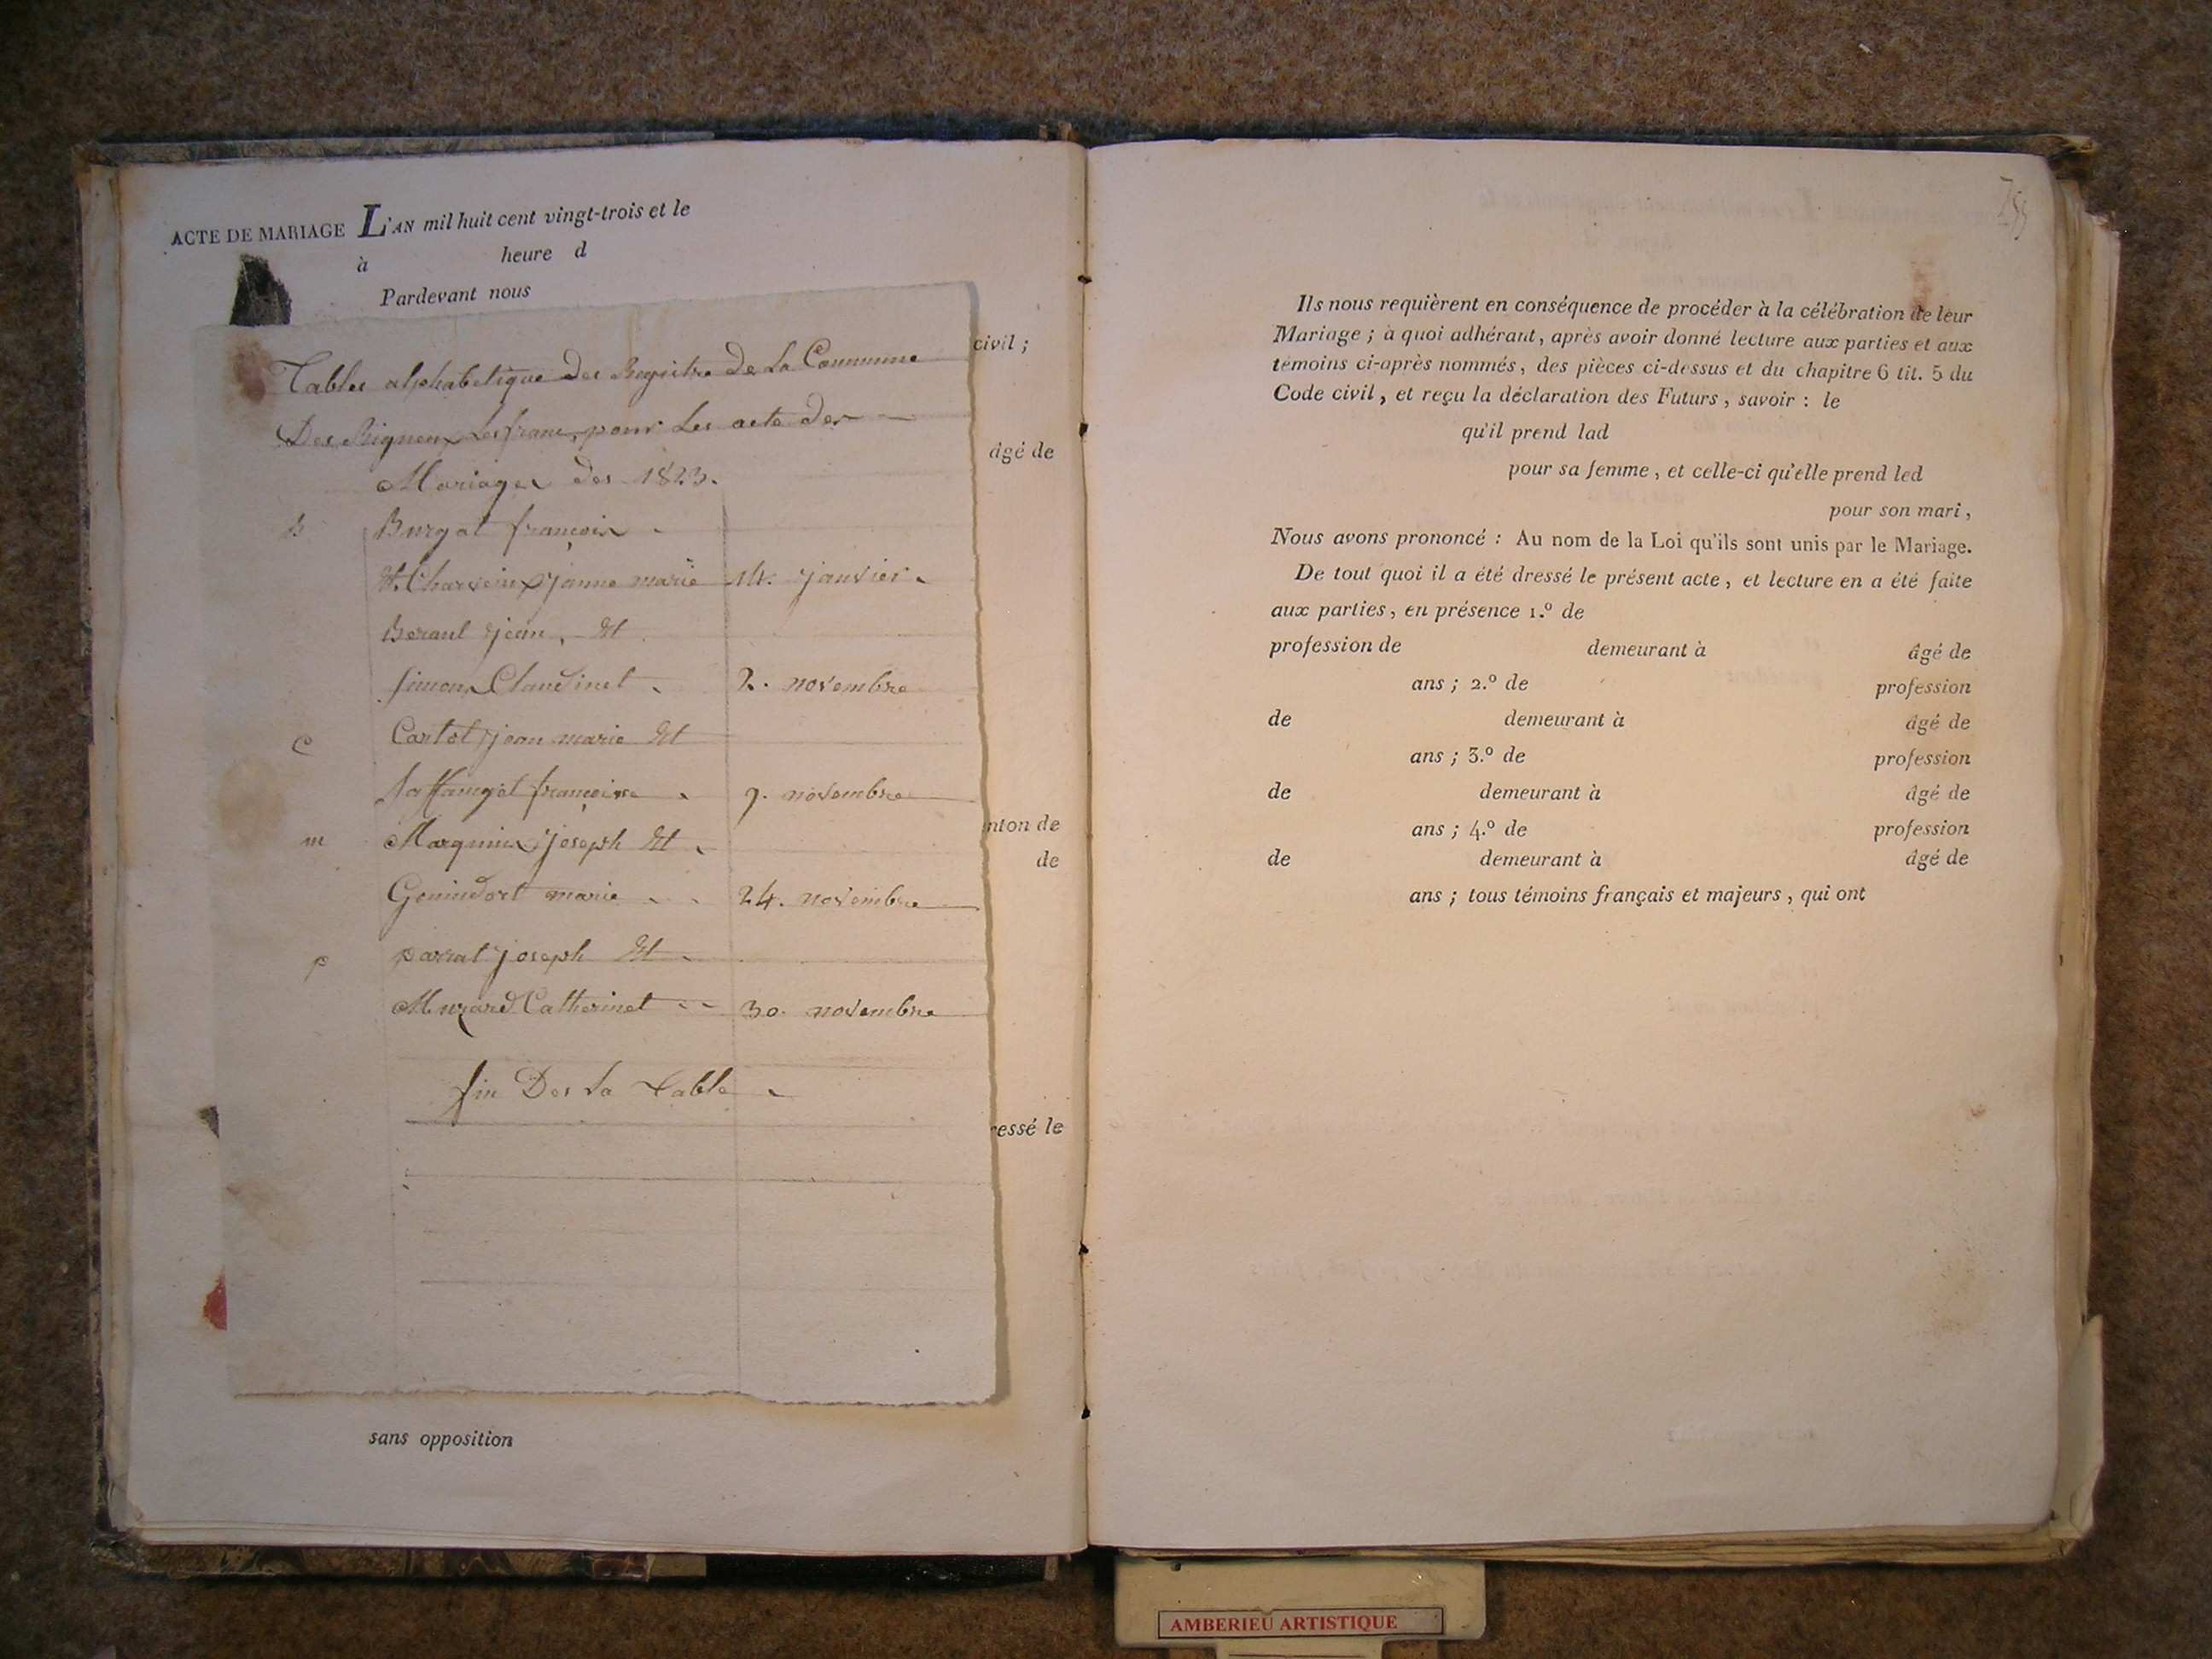 ACTE DE MARIAGE L'AN mil huit cent vingt-trois et le
à heure d
Pardevant nous
civil ;
Tables alphabetique des Registre De La Commune
Des Rigneux Lesfranc, pour Les acte des
âgé de
Mariages des 1823.
B Burgat françois
Et Charvein janne marie 14. janvier
Beraul jean, Et
simon Claudinet 2. novembre
C Cartot jean marie Et
françoise 9. novembre
nton de
m Marguin joseph Et
de
marie 24. novembre
p parrat joseph Et
Murard Catherinet 30. novembre
fin Des La table
ressé le
sans opposition
Ils nous requièrent en conséquence de procéder à la célébration de leur
Mariage ; à quoi adhérant, après avoir donné lecture aux parties et aux
témoins ci-après nommés, des pièces ci-dessus et du chapitre 6 tit. 5 du
Code civil, et reçu la déclaration des Futurs, savoir : le
qu'il prend lad
pour sa femme, et celle-ci qu'elle prend led
pour son mari,
Nous avons prononcé : Au nom de la Loi qu'ils sont unis par le Mariage.
De tout quoi il a été dressé le présent acte, et lecture en a été faite
aux parties, en présence 1.º de
profession de demeurant à âgé de
ans ; 2.º de profession
de demeurant à âgé de
ans ; 3.º de profession
de demeurant à âgé de
ans ; 4.º de profession
de demeurant à âgé de
ans ; tous témoins français et majeurs, qui ont
AMBERIEU ARTISTIQUE